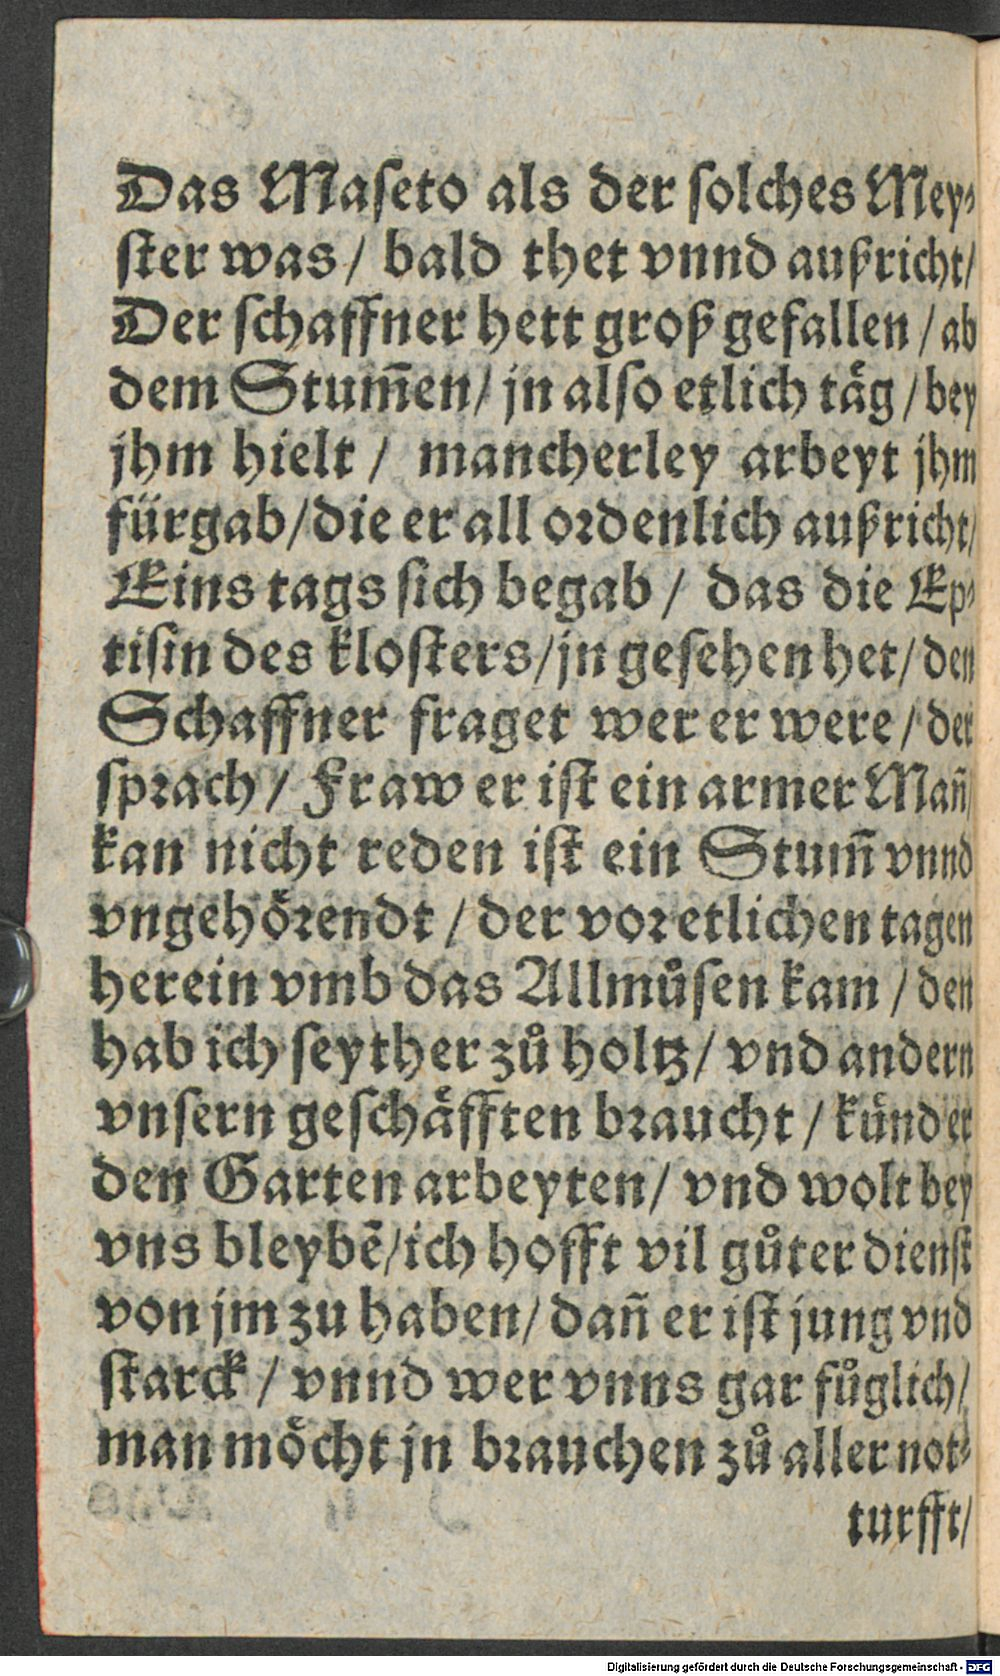 Das Maſeto als der ſolches Mey⸗
ſter was / bald thet vnnd außricht/
Der ſchaffner hett groß gefallen / ab
dem Stum̃en/ jn alſo etlich taͤg / bey
jhm hielt / mancherley arbeyt jhm
fürgab/die er all ordenlich außricht/
Eins tags ſich begab / das die Ep⸗
tiſin des kloſters/jn geſehen het/ den
Schaffner fraget wer er were / der
ſprach / Fraw er iſt ein armer Mañ/
kan nicht reden iſt ein Stum̃ vnnd
vngehoͤrendt / der vor etlichen tagen
herein vmb das Allmůſen kam / den
hab ich ſeyther zů holtz/ vnd andern
vnſern geſchaͤfften braucht / kuͤnd er
den Garten arbeyten/ vnd wolt bey
vns bleybẽ/ich hofft vil gůter dienſt
von jm zu haben/ dañ er iſt jung vnd
ſtarck / vnnd wer vnns gar fůglich/
man moͤcht jn brauchen zů aller not⸗
turfft/
Digitalisierung gefördert durch die Deutsche Forschungsgemeinschaft - DFG